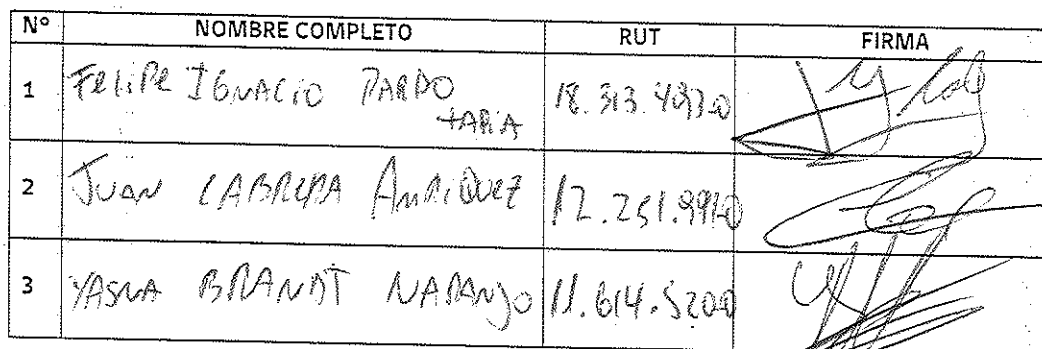 N° NOMBRE COMPLETO RUT FIRMA
1 Felipe IGNACIO PARDO
TAPIA 18.313.497-0
2 JUAN CABRERA ANRIQUEZ 12.251.991-0
3 YASNA BRANDT NARANJO 11.614.520-0